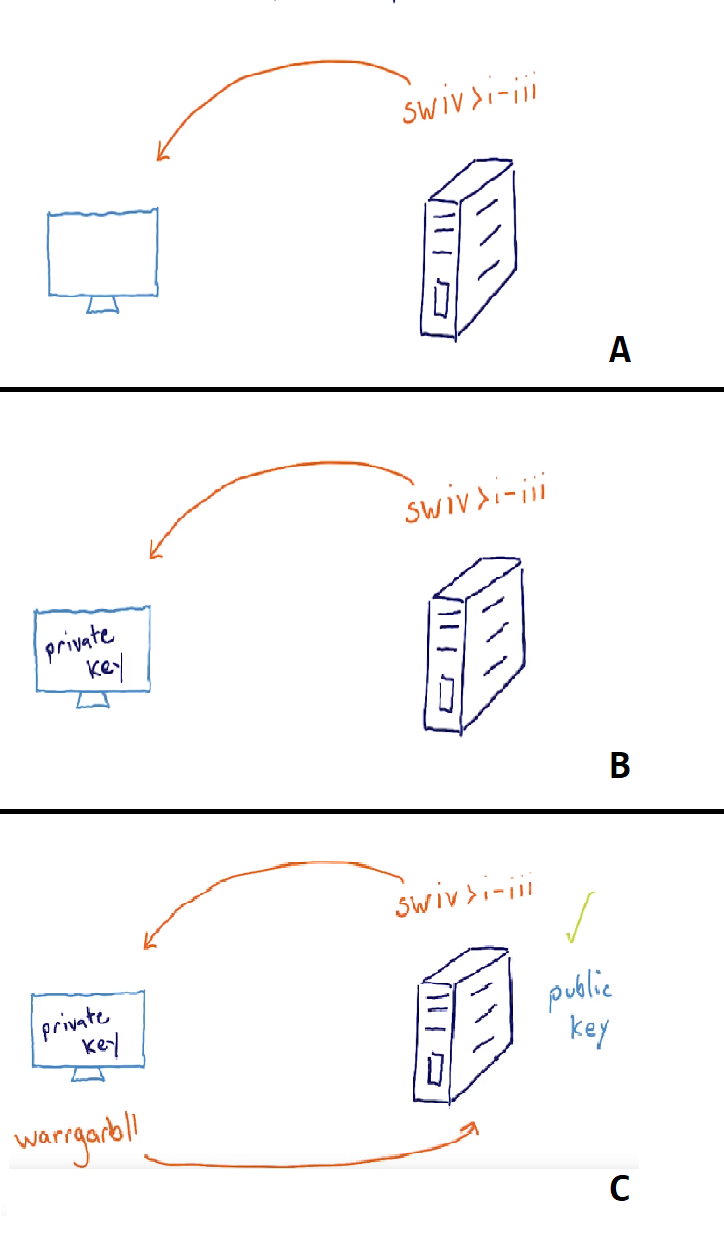 swiv>i-iii
A
swiv>i-iii
private
key
B
swiv>i-iii
public
key
private
key
warrgarbll
C